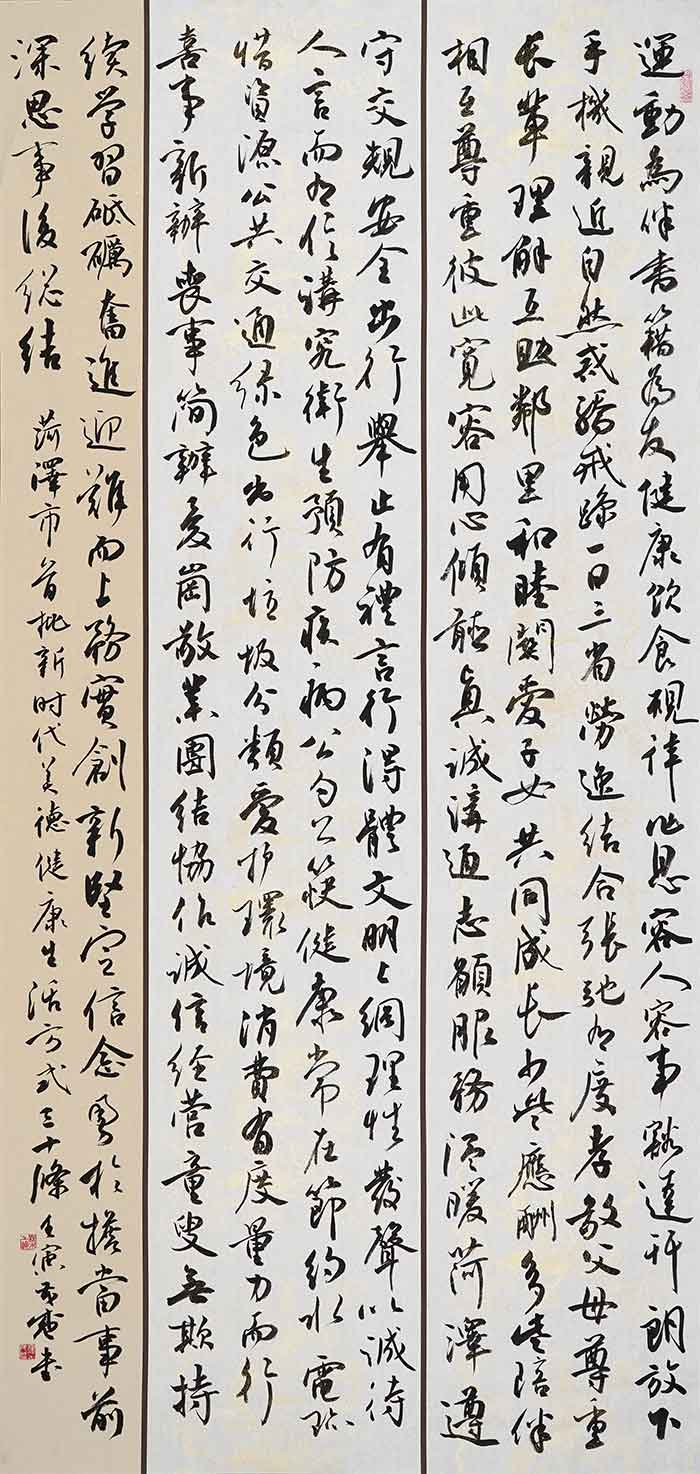 運動為伴書籍為友健康飲食規律作息容人容事豁達開朗放下
手機親近自然戒驕戒躁一日三省勞逸結合張弛有度孝敬父母尊重
長輩理解互助鄰里和睦關愛子女共同成長少些應酬多些陪伴
相互尊重彼此寬容用心傾聽真誠溝通志願服務溫暖菏澤遵
守交規安全出行舉止有禮言行得體文明上網理性發聲以誠待
人言而有信講究衛生預防疾病公勺公筷健康常在節約水電珍
惜資源公共交通綠色出行垃圾分類愛护環境消費有度量力而行
喜事新辦喪事简辦愛崗敬業團结協作誠信经营童叟無欺持
续学習砥礪奮進迎難而上務實創新堅定信念勇於擔當事前
深思事後总结
菏澤市首批新时代美德健康生活方式三十條 壬寅